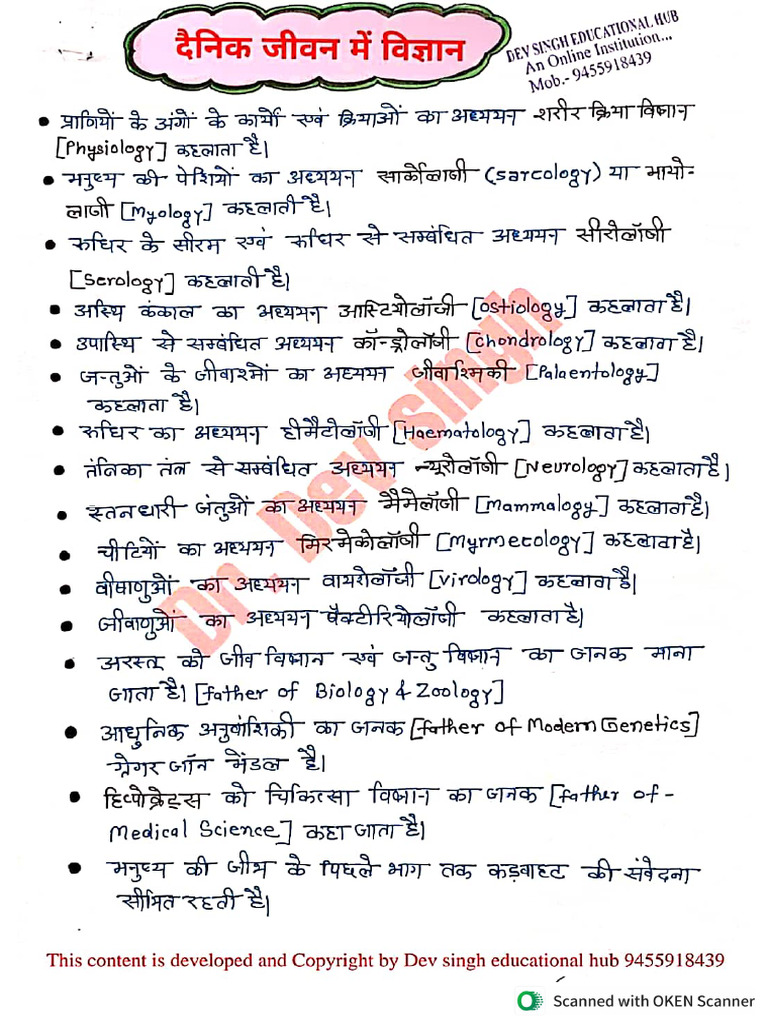 दैनिक जीवन में विज्ञान
DEV SINGH EDUCATIONAL HUB
An Online Institution...
Mob.- 9455918439
• प्राणियों के अंगों के कार्यों एवं क्रियाओं का अध्ययन शरीर क्रिया विज्ञान
[Physiology] कहलाता है।
• मनुष्य की पेशियों का अध्ययन सार्कोलाजी (sarcology) या मायो-
लाजी [Myology] कहलाती है।
• रुधिर के सीरम एवं रुधिर से सम्बंधित अध्ययन सीरोलॉजी
[Serology] कहलाती है।
• अस्थि कंकाल का अध्ययन आस्टियोलॉजी [ostiology] कहलाता है।
• उपास्थि से सम्बंधित अध्ययन कॉन्ड्रोलॉजी [chondrology] कहलाता है।
• जन्तुओं के जीवाश्मों का अध्ययन जीवाश्मिकी [Palaentology]
कहलाता है।
• रुधिर का अध्ययन हीमैटोलॉजी [Haematology] कहलाता है।
• तंत्रिका तंत्र से सम्बंधित अध्ययन न्यूरोलॉजी [Neurology] कहलाता है।
• स्तनधारी जंतुओं का अध्ययन मैमेलॉजी [Mammalogy] कहलाता है।
• चीटियों का अध्ययन मिरमेकोलॉजी [Myrmecology] कहलाता है।
• वीषाणुओं का अध्ययन वायरोलॉजी [virology] कहलाता है।
• जीवाणुओं का अध्ययन बैक्टीरियोलॉजी कहलाता है।
• अरस्तू को जीव विज्ञान एवं जन्तु विज्ञान का जनक माना
जाता है। [father of Biology & Zoology]
• आधुनिक अनुवांशिकी का जनक [father of Modern Genetics]
ग्रेगर जॉन मेंडल है।
• हिप्पोक्रेट्स को चिकित्सा विज्ञान का जनक [father of -
Medical Science] कहा जाता है।
• मनुष्य की जीभ के पिछले भाग तक कड़वाहट की संवेदना
सीमित रहती है।
Dr. Dev singh
This content is developed and Copyright by Dev singh educational hub 9455918439
Scanned with OKEN Scanner